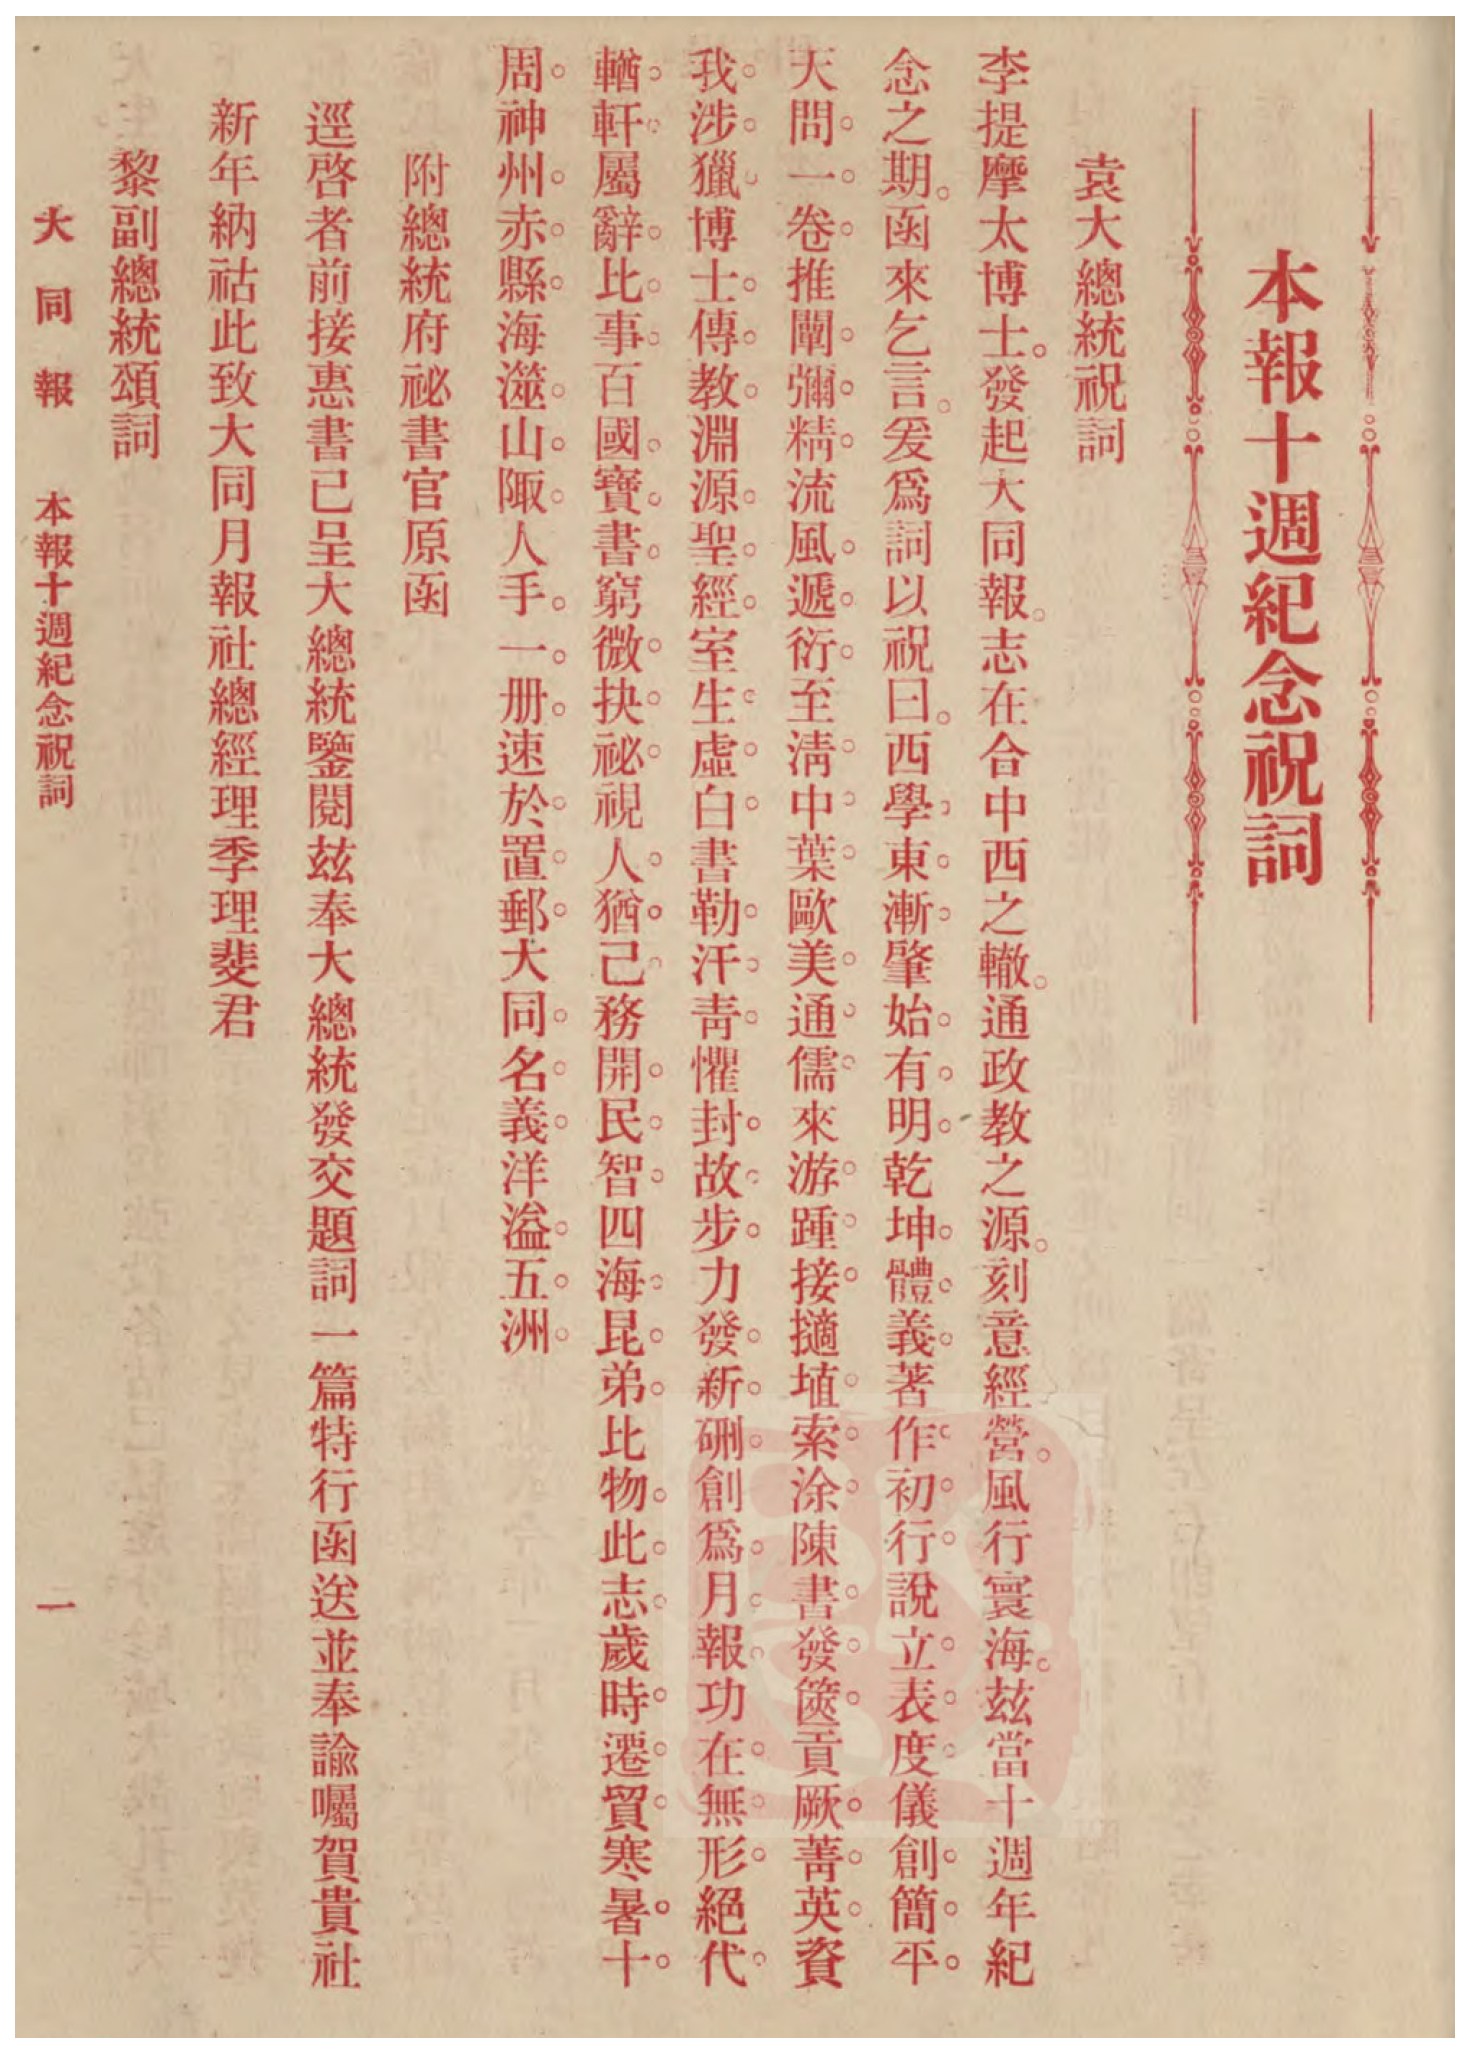 本報十週紀念祝詞
袁大總統祝詞
李提摩太博士。發起大同報。志在合中西之轍。通政教之源。刻意經營。風行寰海。玆當十週年紀
念之期。函來乞言。爰爲詞以祝曰。西學東漸肇始有明乾坤體義著作初行說立表度儀創簡平
天問一卷推闡彌精流風遞衍至淸中葉歐美通儒來游踵接擿埴索涂陳書發篋貢厥菁英資
我涉獵博士傳教淵源聖經室生虛白書勒汗靑懼封故步力發新硎創爲月報功在無形絕代
輶軒屬辭比事百國寶書窮微抉祕視人猶己務開民智四海昆弟比物此志歲時遷貿寒暑十
周神州赤縣海澨山陬人手一册速於置郵大同名義洋溢五洲
附總統府祕書官原函
逕啓者前接惠書已呈大總統鑒閱玆奉大總統發交題詞一篇特行函送並奉諭囑賀貴社
新年納祜此致大同月報社總經理季理斐君
黎副總統頌詞
大同報 本報十週紀念祝詞 一